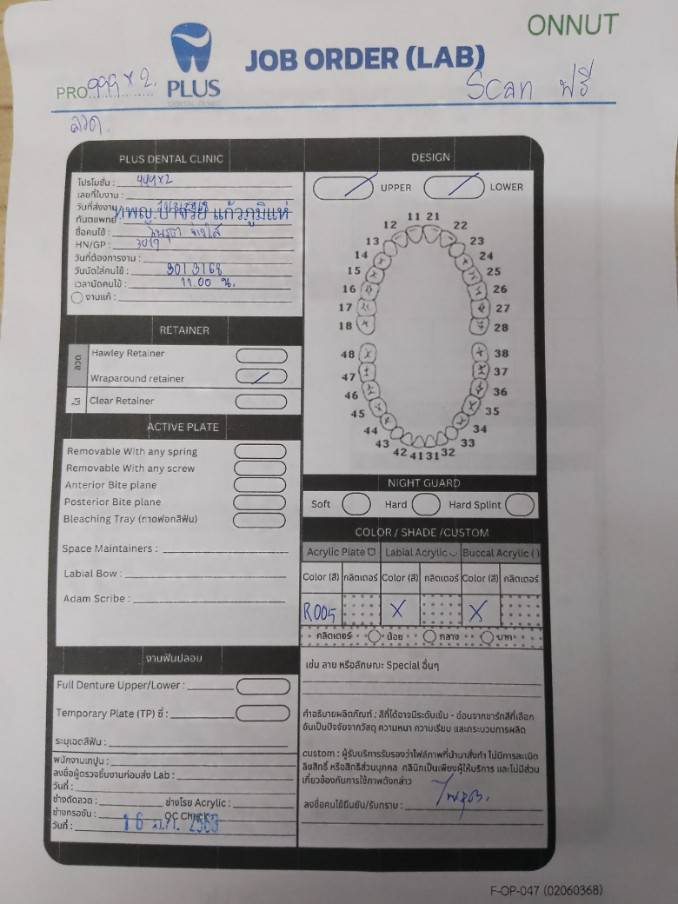 ONNUT
JOB ORDER (LAB)
PRO 999 x 2.
PLUS
DENTAL CLINIC
Scan ฟรี
ลวด.
PLUS DENTAL CLINIC
โปรโมชั่น : 999x2
เลขที่ใบงาน :
วันที่ส่งงาน
ทันตแพทย์ :
แก้วภูมิแห่
ชื่อคนไข้ :
HN/GP : 3019
วันที่ต้องการงาน :
วันนัดใส่คนไข้ : 30/3/68
เวลานัดคนไข้ : 11.00 น.
งานแก้ :
RETAINER
ลวด
Hawley Retainer
Wraparound retainer
ใส
Clear Retainer
ACTIVE PLATE
Removable With any spring
Removable With any screw
Anterior Bite plane
Posterior Bite plane
Bleaching Tray (ถาดฟอกสีฟัน)
Space Maintainers :
Labial Bow :
Adam Scribe :
งานฟันปลอม
Full Denture Upper/Lower :
Temporary Plate (TP) ซี่ :
ระบุเฉดสีฟัน :
พนักงานเทปูน :
ลงชื่อผู้ตรวจชิ้นงานก่อนส่ง Lab :
วันที่ :
ช่างดัดลวด :
ช่างโรย Acrylic :
ช่างกรอขัด :
QC Check :
วันที่ :
DESIGN
UPPER
LOWER
11 21
12 22
13 23
14 24
15 25
16 26
17 27
18 28
48 38
47 37
46 36
45 35
44 34
43 33
42 41 31 32
NIGHT GUARD
Soft
Hard
Hard Splint
COLOR / SHADE /CUSTOM
Acrylic Plate
Labial Acrylic
Buccal Acrylic ( )
Color (สี) กลิตเตอร์ Color (สี) กลิตเตอร์ Color (สี) กลิตเตอร์
R005 X X
กลิตเตอร์ น้อย กลาง มาก
เช่น ลาย หรือลักษณะ Special อื่นๆ
คำอธิบายผลิตภัณฑ์ : สีที่ได้อาจมีระดับเข้ม - อ่อนจากชาร์ทสีที่เลือก
อันเป็นปัจจัยจากวัสดุ ความหนา ความเรียบ และกระบวนการผลิต
custom : ผู้รับบริการรับรองว่าไฟล์ภาพที่นำมาสั่งทำ ไม่มีการละเมิด
ลิขสิทธิ์ หรือสิทธิส่วนบุคคล คลินิกเป็นเพียงผู้ให้บริการ และไม่มีส่วน
เกี่ยวข้องกับการใช้ภาพดังกล่าว
ลงชื่อคนไข้ยืนยัน/รับทราบ :
F-OP-047 (02060368)